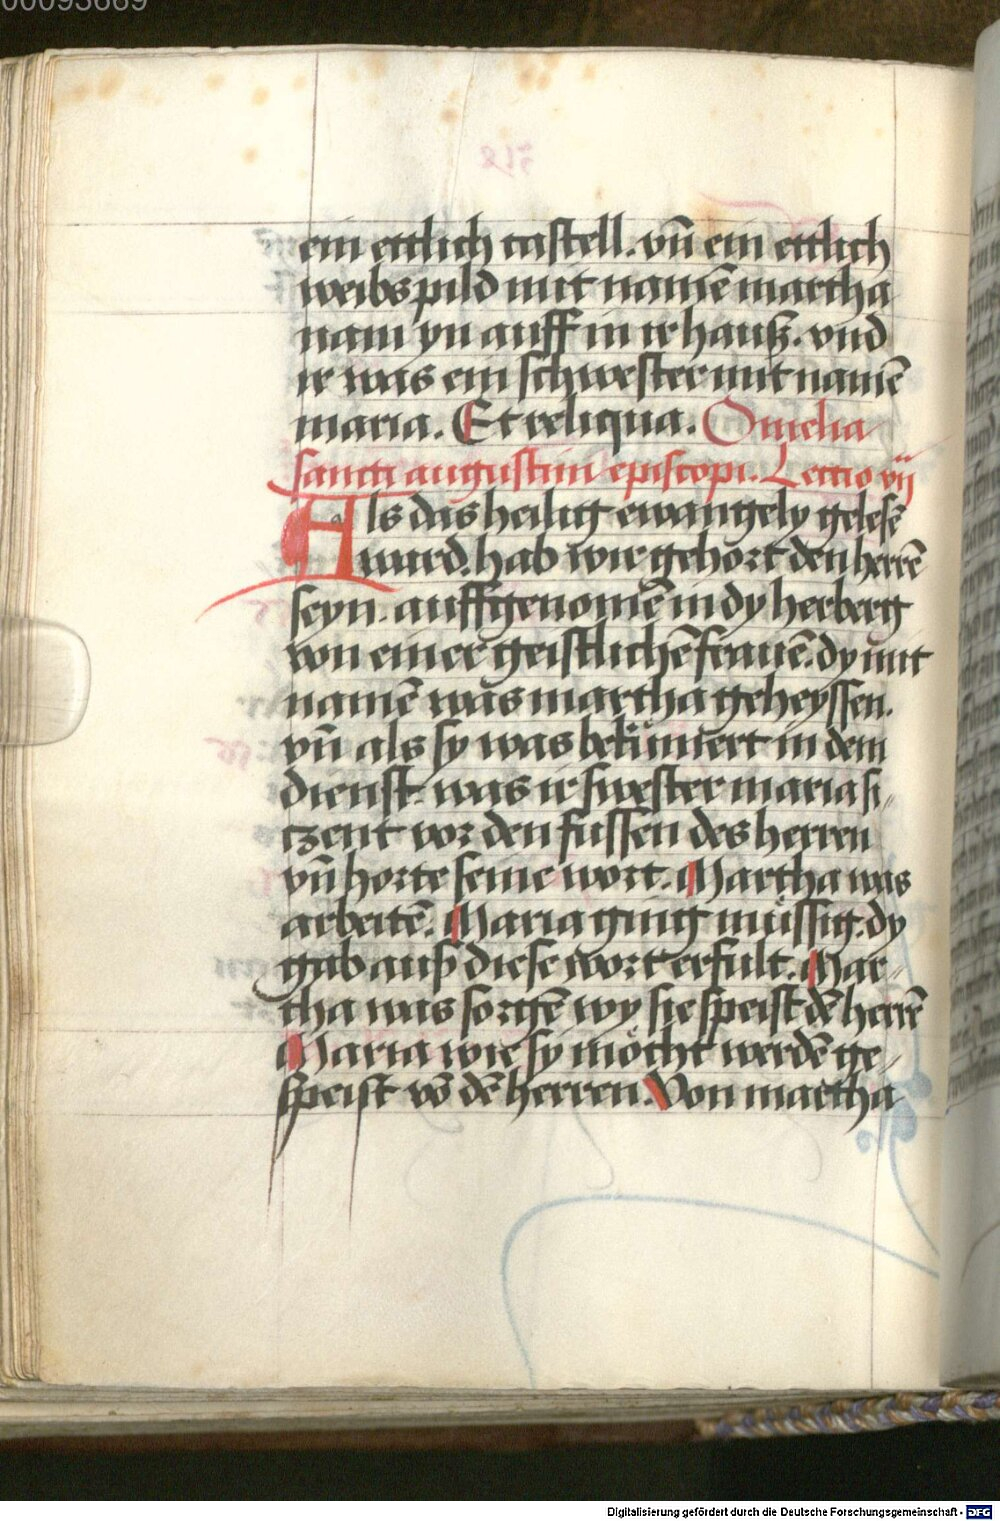 ein ettlich castell. vn̄ ein ettlich
weibspild mit namē martha
nam yn auff in ir hauß. vnd
ir was ein schwester mit namē
maria. Et reliqua. Omelia
sancti augustini episcopi. Lectio vij
Als das heilig ewangely gelesē
ward. hab wir gehort den herrē
seyn auffgenomē in dy herberg
von einer geistlichē frauē. dy mit
namē was martha geheyssen.
vn̄ als sy was bekümert in dem
dienst. was ir swester maria si⸗
tzent vor den fussen des herren
vn̄ horte seine wort. Martha was
arbeitē. Maria ging müssig. dy
gab auß diese wort erfult. Mar⸗
tha was sorgē wy sie speist dē herrē
Maria wie sy möcht werdē ge⸗
speist vō dē herren. Von martha
Digitalisierung gefördert durch die Deutsche Forschungsgemeinschaft - DFG